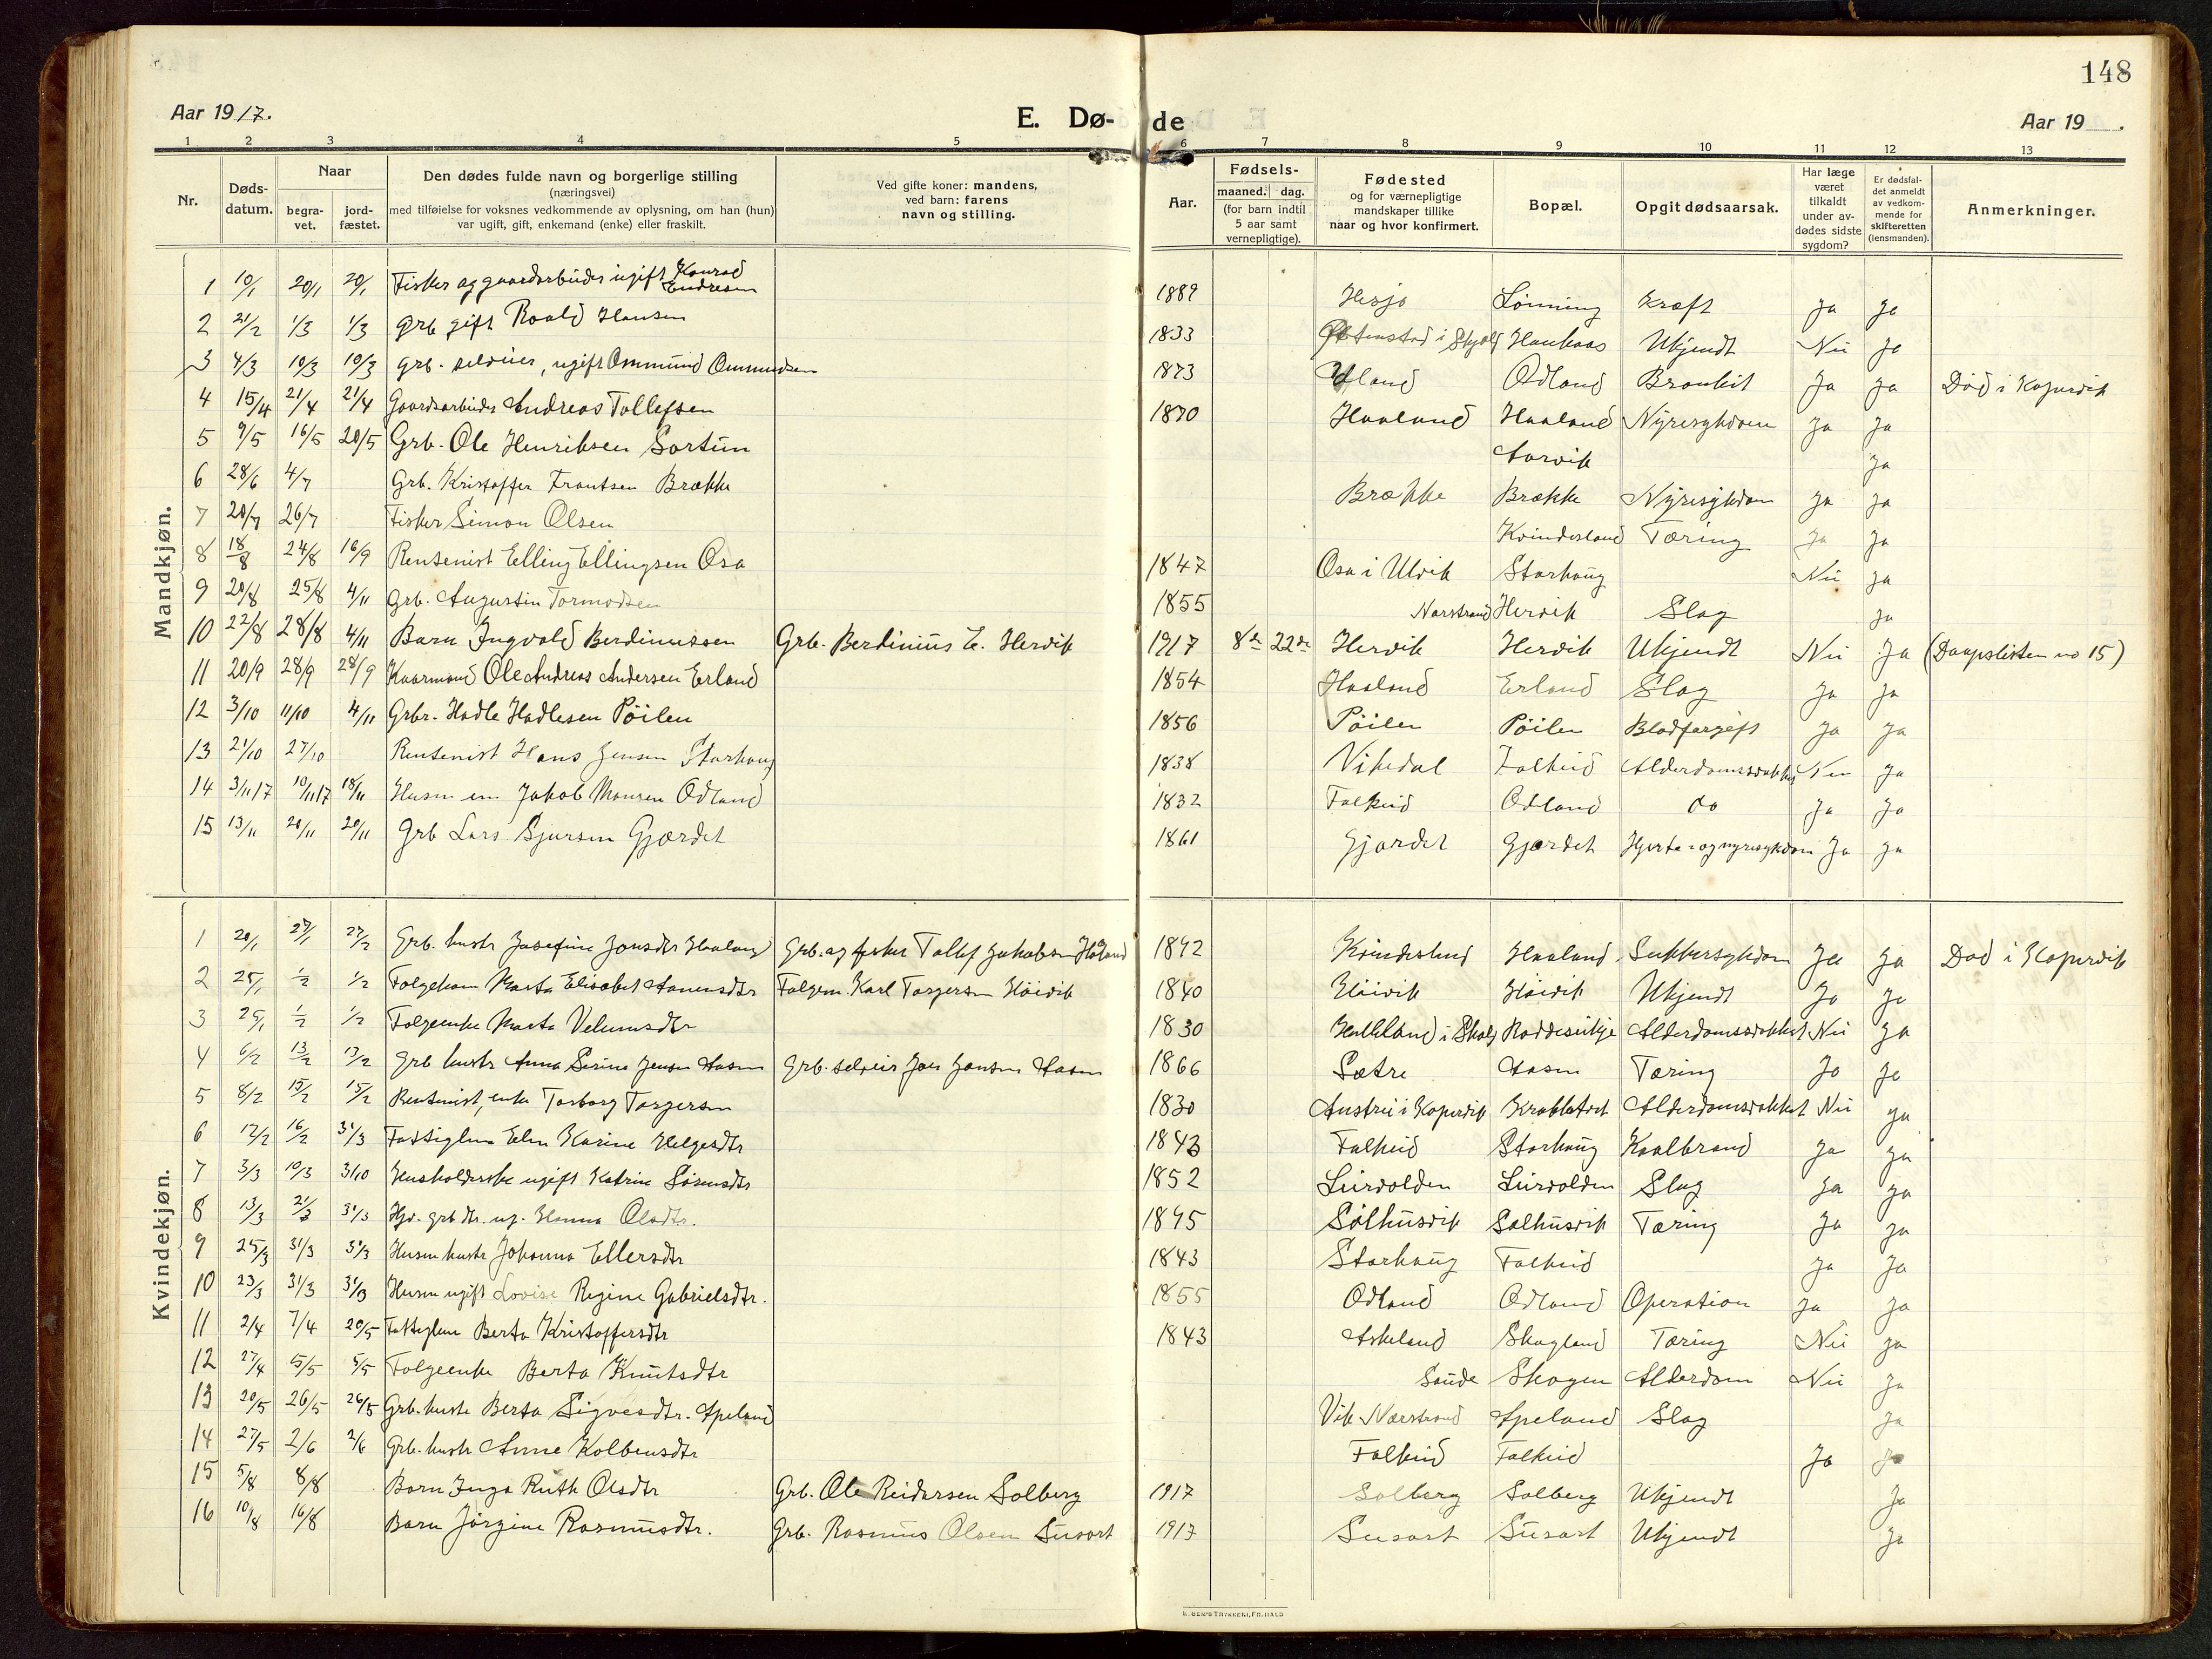 148
Aar 1917.
E. Dø-
de
Aar 19 .
1 2 3 4 5 6 7 8 9 10 11 12 13
Nr.
Døds-
datum.
Naar
begra-
vet.
jord-
fæstet.
Den dødes fulde navn og borgerlige stilling
(næringsvei)
med tilføielse for voksnes vedkommende av oplysning, om han (hun)
var ugift, gift, enkemand (enke) eller fraskilt.
Ved gifte koner: mandens,
ved barn: farens
navn og stilling.
Aar.
Fødsels-
maaned. dag.
(for barn indtil
5 aar samt
vernepligtige).
Fødested
og for værnepligtige
mandskaper tillike
naar og hvor konfirmert.
Bopæl.
Opgit dødsaarsak.
Har læge
været
tilkaldt
under av-
dødes sidste
sygdom?
Er dødsfal-
det anmeldt
av vedkom-
mende for
skifteretten
(lensmanden).
Anmerkninger.
Mandkjøn.
1 10/1 20/1 20/1 Fisker og gaardarbeider ugift Konrad Endresen 1889 Hesjo Lønning Kræft Ja Ja
2 21/2 1/3 1/3 Grb gift Roald Hansen 1833 i Skjold Haukaas Ukjendt Nei Ja
3 4/3 10/3 10/3 Grb. seleier, ugift Ommund Ommundsen 1873 Odland Bronkit Ja Ja Død i Kopervik
4 15/4 21/4 21/4 Gaardsarbeider Andreas Tollefsen 1870 Haaland Haaland Nyresykdom Ja Ja
5 9/5 16/5 20/5 Grb. Ole Henriksen Sørtun Aarvik Ja
6 28/6 4/7 Grb. Kristoffer Frantsen Brække Brække Brække Nyresykdom Ja Ja
7 20/7 26/7 Fisker Simon Olsen Kvindesland Tæring Ja Ja
8 18/8 24/8 16/9 Rentenist Elling Ellingsen Osa 1847 Osa i Ulvik Storhaug Nei Ja
9 20/8 25/8 4/11 Grb. Augustin Tormodsen 1855 Narstrand Hervik Slag Ja
10 22/8 28/8 4/11 Barn Ingvald Berdinussen Grb. Berdinius E. Hervik 1917 8de 22de Hervik Hervik Ukjendt Nei Ja (Daapslisten no 15)
11 20/9 28/9 28/9 Kaarmand Ole Andreas Andersen Erland 1854 Haaland Erland Slag Ja Ja
12 3/10 11/10 4/11 Grbr. Hadle Hadlesen Pöilen 1856 Pöilen Pöilen Blodforgift Ja Ja
13 21/10 27/10 Rentenist Hans Jensen Storhaug 1838 Vikedal Falkeid Alderdomssvakhet Nei Ja
14 3/11 17 10/11 17 18/11 Husm em Jakob Monsen Odland 1832 Falkeid Odland do Ja Ja
15 13/11 20/11 20/11 Grb Lars Sjursen Gjærdet 1861 Gjærdet Gjærdet Hjerte- og nyresykdom Ja Ja
Kvindekjøn.
1 20/1 27/1 27/2 Grb. hustr Josefine Jonsdtr Haaland Grb. og fisker Tollef Jakobsen Haaland 1892 Kvindesland Haaland Sukkersykdom Ja Ja Død i Kopervik
2 25/1 1/2 1/2 Folgekone Marta Elisabet Aanensdtr Folgem. Karl Torgersen Höivik 1840 Höivik Höivik Ukjendt Ja Ja
3 25/1 1/2 1/2 Folgeenke Marta Velumsdtr 1830 i Skjold Alderdomssvakhet Nei Ja
4 6/2 13/2 13/2 Grb hustr Anna Serina Jensen Aasen Grb. seleier Jon Jonsen Aasen 1866 Sætre Aasen Tæring Ja Ja
5 8/2 15/2 15/2 Rentenist, enke Torborg Torgersen 1830 i Kopervik Alderdomssvakhet Nei Ja
6 12/2 16/2 31/3 Fattiglem Elen Karine Helgesdtr 1843 Falkeid Storhaug Kaalbrand Ja Ja
7 3/3 10/3 Husholderske ugift Katrine Sörensdtr 1852 Leirvolden Leirvolden Slag Ja Ja
8 13/3 21/3 31/3 Hjv. grb dtr. ug. Hanna Olsdtr. 1895 Sölhusvik Salhusvik Tæring Ja Ja
9 25/3 31/3 31/3 Husm hustr Johanna Ellersdtr 1843 Storhaug Falkeid Ja Ja
10 23/3 31/3 31/3 Husm ugift Lovise Regine Gabrielsdtr. 1855 Odland Odland Operation Ja Ja
11 2/4 7/4 20/5 Fattiglem Berta Kristoffersdtr 1843 Askeland Skogland Tæring Nei Ja
12 27/4 5/5 5/5 Folgeenke Berta Knutsdtr Sande Skogen Alderdom Nei Ja
13 20/5 26/5 26/5 Grb. hustr Berta Sigvesdtr. Apeland Vik Nærstrand Apeland Slag Ja
14 27/5 2/6 2/6 Grb. hustr Anne Kolbensdtr Falkeid Falkeid Ja Ja
15 5/8 8/8 Barn Inga Ruth Olsdtr Grb. Ole Reidarsen Solberg 1917 Solberg Solberg Ukjendt Ja
16 10/8 16/8 Barn Jörgine Rasmusdtr. Grb. Rasmus Olsen Susort 1917 Susort Susort Ukjendt Ja